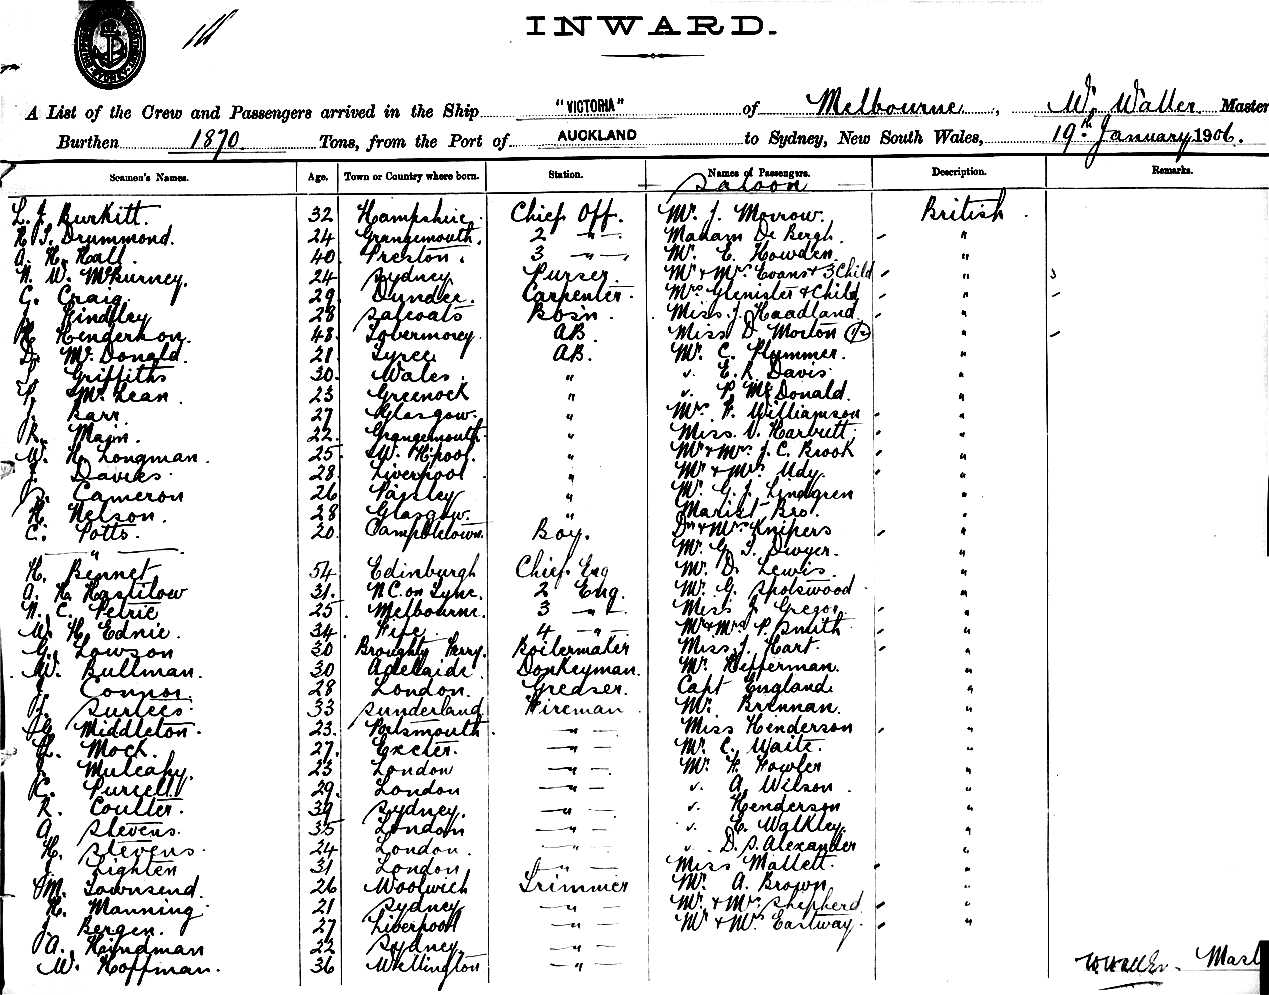 INWARD.
A List of the Crew and Passengers arrived in the Ship "VICTORIA" of Melbourne, W. Waller Master
Burthen 1870 Tons, from the Port of AUCKLAND to Sydney, New South Wales, 19th January 1906.
Seamen's Names. Age. Town or Country where born. Station. Names of Passengers. Description. Remarks.
Saloon
Burkitt. 32 Hampshire. Chief Off. Mr. J. Morrow. British.
Drummond. 24 Grangemouth. 2 " Madam De Bergh. "
A. H. Hall. 40 Preston. 3 " Mr. E. Howden. "
N. W. McBurney. 24 Sydney. Purser. Mr & Mrs Evans & 3 Child " 3
G. Craig. 29 Dundee. Carpenter. Mrs Glenister & Child "
Lindley 28 Salcoats Bosn. Miss. J. Haadland. "
Henderson. 48. Tobermorey. AB. Miss D. Morton "
D. McDonald. 21 Tyree AB. Mr. C. Plummer. "
Griffiths 30. Wales. " E. R. Davis "
McLean. 23 Greenock " P. McDonald. "
J. Barr. 27 Glasgow. " Mr. F. Williamson "
R. Main. 22. Grangemouth. " Miss. V. Harbutt "
W. H. Longman. 25 W. H'pool. " Mr & Mrs. J. C. Brook "
J. Davies. 28. Liverpool " Mr & Mrs. Udy. "
Cameron 26 Paisley " Mr. G. J. Lindgren "
H. Nelson. 28 Glasgow. " Marist Bro. "
C. Potts. 20. Campbletown. Boy. Dr & Mrs Knipers "
" Mr. G. T. Dwyer. "
H. Bennet 54 Edinburgh Chief Eng Mr. D. Lewis. "
A. H. Haselow 31. N.C. on Tyne. 2 Eng. Mr. G. Spotswood "
N. C. Petrie 25 Melbourne. 3 " Miss J. Gregor. "
W. H. Ednie. 34. Fife. 4 " Mr & Mrs P. Smith "
G. Lowson 30 Broughty Ferry. Boilermaker Miss. J. Hart. "
W. Bullman. 30 Adelaide. Donkeyman. Mr. Hefferman. "
J. Connor. 28 London. Greaser. Capt England. "
Surtees 33 Sunderland Fireman Mr. Brennan. "
Middleton. 23. Portsmouth " Miss Henderson "
Mock. 27. Exeter. " Mr. C. Waite. "
J. Mulcahy. 23 London " Mr. F. Fowler "
Purcell 29. London " A. Wilson. "
R. Coulter. 39 Sydney. " Henderson "
A. Stevens. 35 London " E. Walkley. "
H. Stevens. 24 London. " D. S. Alexander "
Lighten 31 London. " Miss Mallett. "
M. Townsend. 26 Woolwich Trimmer Mr. A. Brown "
H. Manning. 21 Sydney " Mr. & Mrs. Shepherd. "
J. Bergen. 27 Liverpool " Mr & Mrs. Eastway. "
A. Heindman 22 Sydney. "
W. Hoffman. 36 Wellington "
W. Waller. Mast